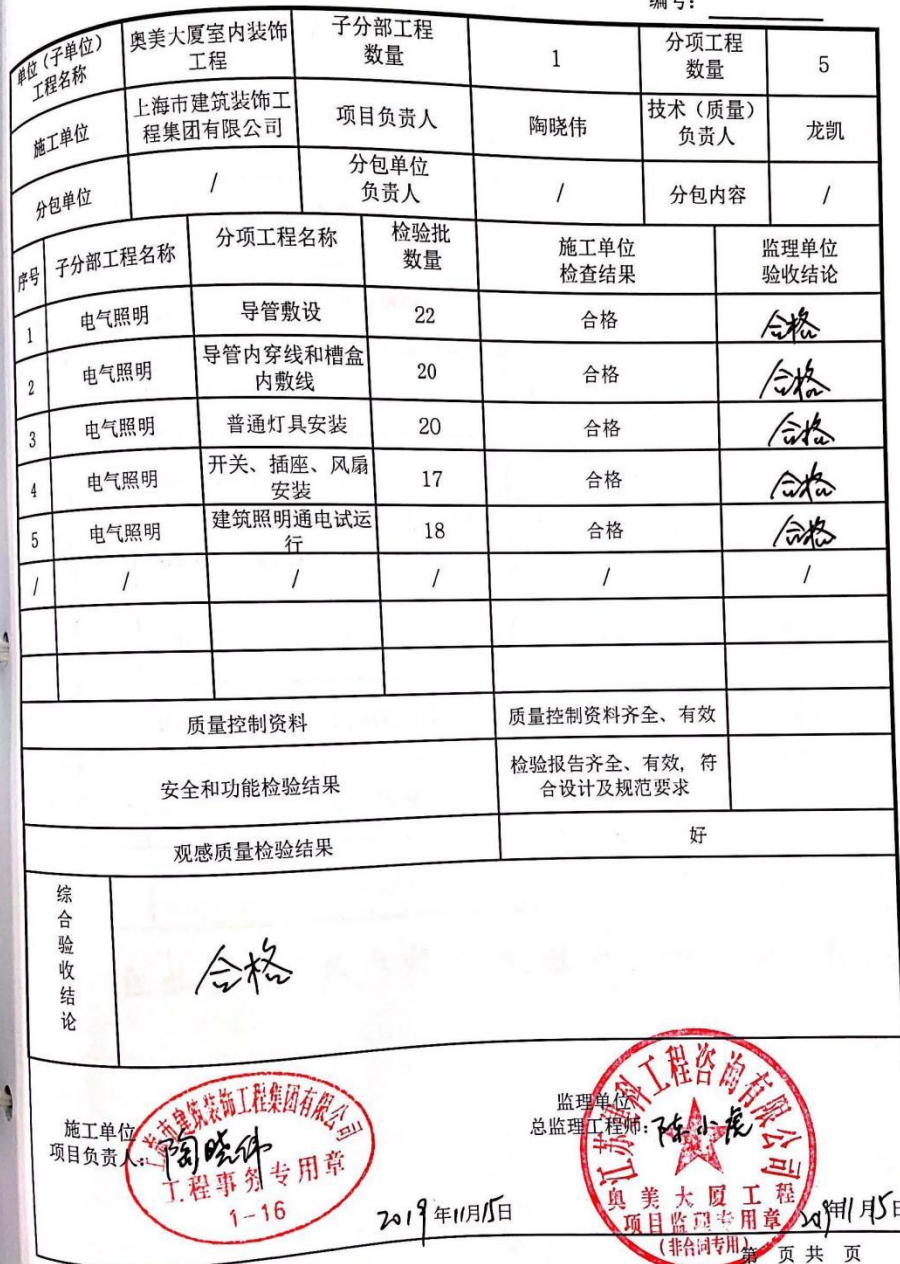 编号:
单位(子单位)
工程名称
奥美大厦室内装饰
工程
子分部工程
数量
1
分项工程
数量
5
施工单位
上海市建筑装饰工
程集团有限公司
项目负责人
陶晓伟
技术(质量)
负责人
龙凯
分包单位
/
分包单位
负责人
/
分包内容
/
序号
子分部工程名称
分项工程名称
检验批
数量
施工单位
检查结果
监理单位
验收结论
1
电气照明
导管敷设
22
合格
合格
2
电气照明
导管内穿线和槽盒
内敷线
20
合格
合格
3
电气照明
普通灯具安装
20
合格
合格
4
电气照明
开关、插座、风扇
安装
17
合格
合格
5
电气照明
建筑照明通电试运
行
18
合格
合格
/
/
/
/
/
/
质量控制资料
质量控制资料齐全、有效
安全和功能检验结果
检验报告齐全、有效, 符
合设计及规范要求
观感质量检验结果
好
综合验收结论
合格
施工单位
项目负责人:
陶晓伟
上海市建筑装饰工程集团有限公司
工程事务专用章
1-16
2019年11月15日
监理单位
总监理工程师:
陈小虎
江苏建科工程咨询有限公司
奥美大厦工程
项目监理专用章
(非合同专用)
2019年11月15日
第 页 共 页